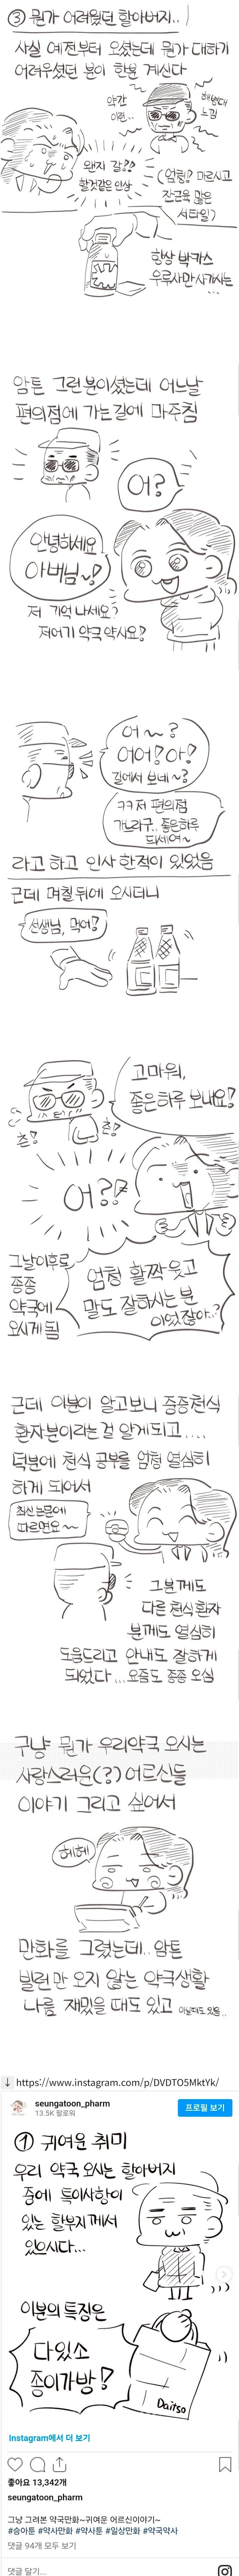 ③ 뭔가 어려웠던 할아버지..
사실 예전부터 오셨는데 뭔가 대하기
어려우셨던 분이 한분 계신다
약간
이런..
해병대
느낌
왠지 갈!??
할것같은 인상
(엄청? 마르시고
잔근육 많은
스타일?)
항상 박카스
우루사만 사가시는...
암튼 그런분이셨는데 어느날
편의점에 가는길에 마주침
어?
안녕하세요
아버님~!
저 기억나세요?
저어기 약국 약사요!
어~?
어어! 아!
길에서 보네~?
ㅋㅋ 저 편의점
가느라구.. 좋은하루
되세여~
라고 하고 인사 한적이 있었음
근데 며칠뒤에 오시더니
선생님, 먹어!
고마워,
좋은하루 보내요!
츤!
츤!
어??
그날이후로
종종
약국에
오시게 됨
엄청 활짝 웃고
말도 잘하시는 분
이었잖아..?
근데 이분이 알고보니 중증천식
환자분이라는 걸 알게되고....
덕분에 천식 공부를 엄청 열심히
하게 되어서
최신 논문에
따르면요~~
그분께도
다른 천식환자
분께도 열심히
도움드리고 안내도 잘하게
되었다... 요즘도 종종 오심
구냥 뭔가 우리약국 오시는
사랑스러운(?) 어르신들
이야기 그리고 싶어서
헤헤
만화를 그렸는데.. 암튼
빌런만 오지 않는 약국생활
나름 재밌을 때도 있고 아닐때도 있음..
↓ https://www.instagram.com/p/DVDTO5MktYk/
seungatoon_pharm
13.5K 팔로워
프로필 보기
① 귀여운 취미
우리 약국 오시는 할아버지
중에 특이사항이
있는 할부지께서
있으시다...
이분의 특징은
다있소
종이가방!
Daitso
Instagram에서 더 보기
좋아요 13,342개
seungatoon_pharm
그냥 그려본 약국만화~귀여운 어르신이야기~
#승아툰 #약사만화 #약사툰 #일상만화 #약국약사
댓글 94개 모두 보기
댓글 달기...